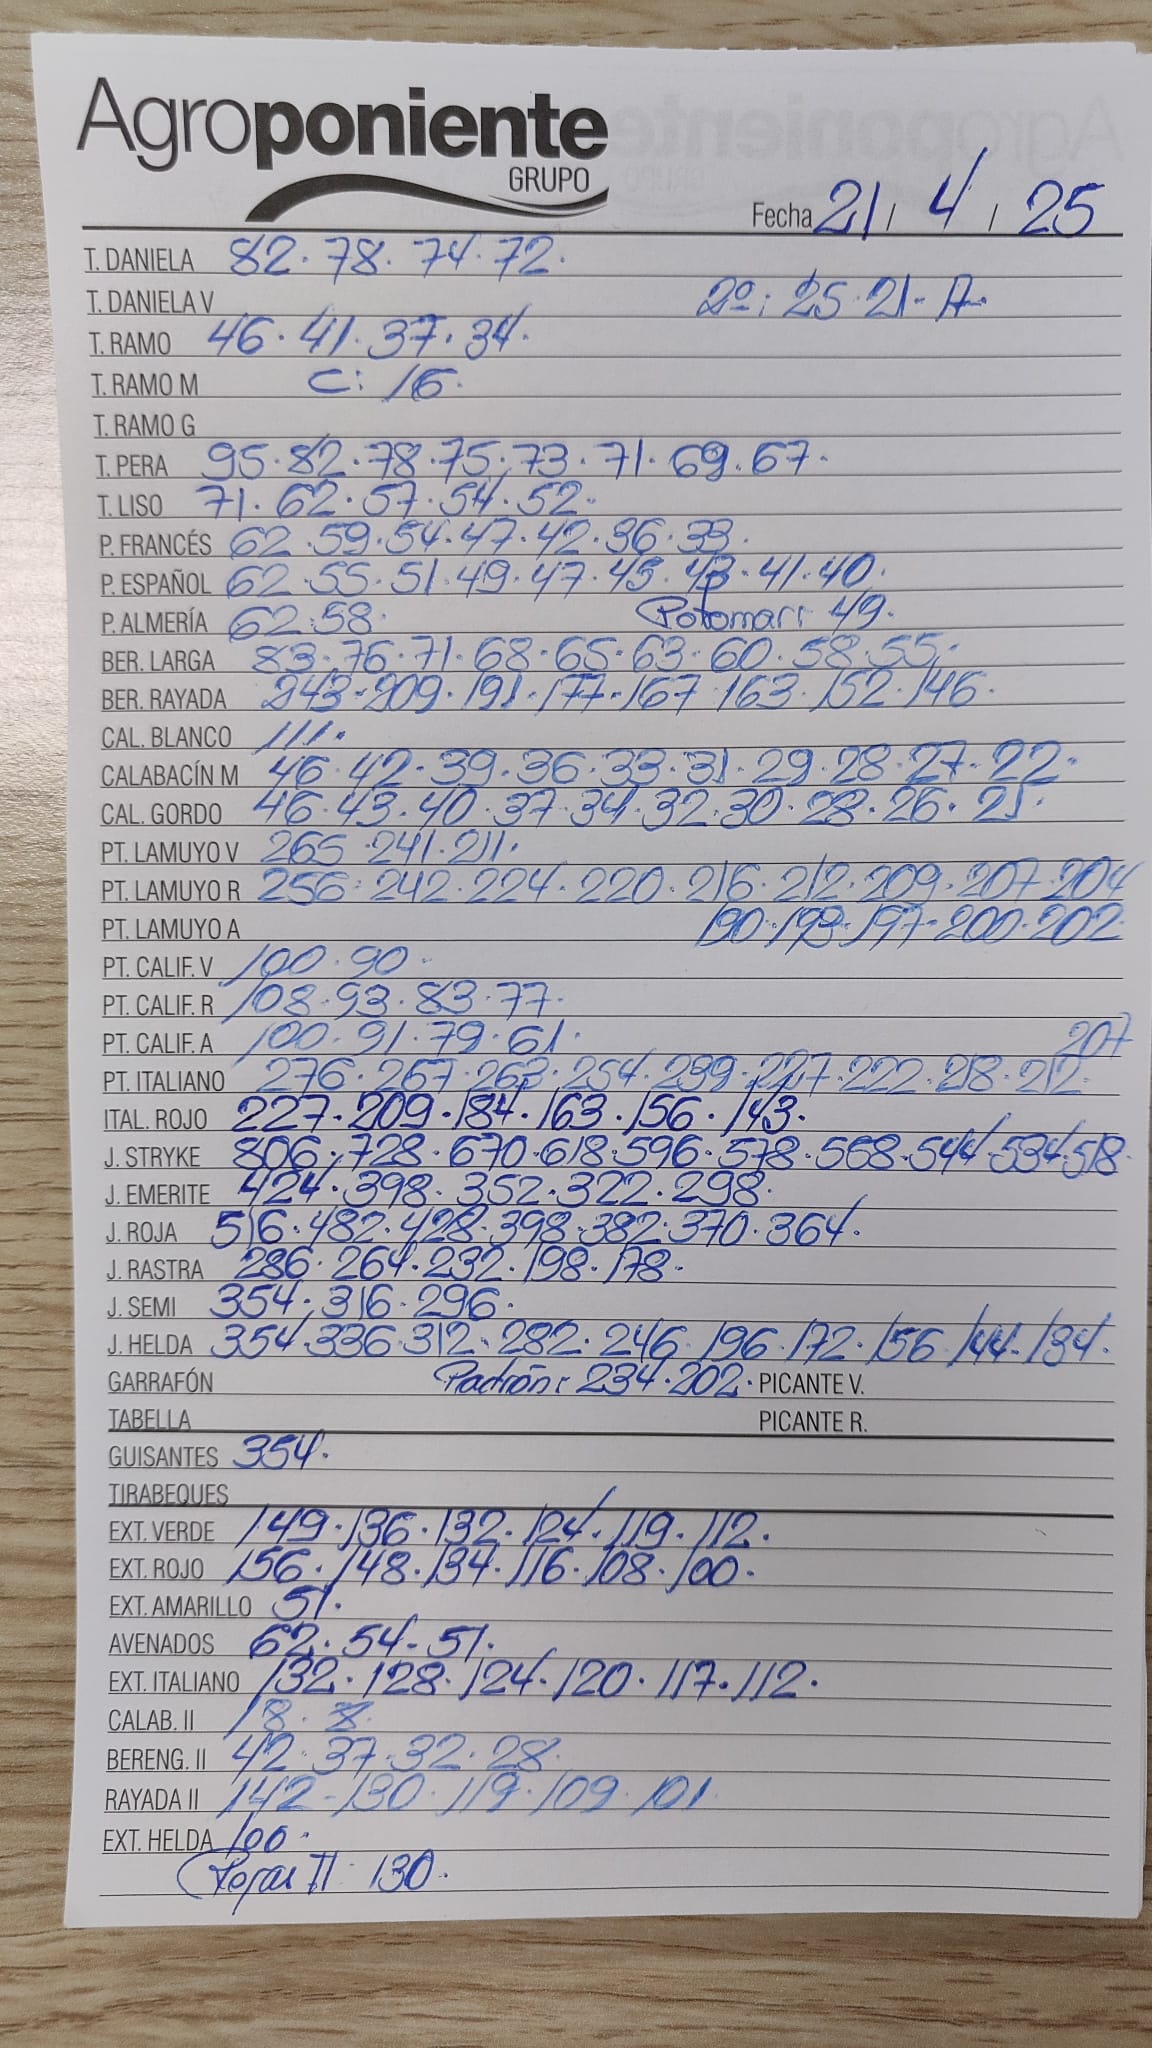 Agroponiente
GRUPO
Fecha 21 / 4 / 25
T. DANIELA 82. 78. 74. 72.
T. DANIELA V 2º: 25. 21. A.
T. RAMO 46. 41. 37. 34.
T. RAMO M C: 16.
T. RAMO G
T. PERA 95. 82. 78. 75. 73. 71. 69. 67.
T. LISO 71. 62. 57. 54. 52.
P. FRANCÉS 62. 59. 54. 47. 42. 36. 33.
P. ESPAÑOL 62. 55. 51. 49. 47. 45. 43. 41. 40.
P. ALMERÍA 62. 58. Potomar: 49.
BER. LARGA 83. 76. 71. 68. 65. 63. 60. 58. 55.
BER. RAYADA 243. 209. 191. 177. 167. 163. 152. 146.
CAL. BLANCO 111.
CALABACÍN M 46. 42. 39. 36. 33. 31. 29. 28. 27. 22.
CAL. GORDO 46. 43. 40. 37. 34. 32. 30. 28. 26. 25.
PT. LAMUYO V 265. 241. 211.
PT. LAMUYO R 256. 242. 224. 220. 216. 212. 209. 207. 204
PT. LAMUYO A 190. 193. 197. 200. 202.
PT. CALIF. V 100. 90.
PT. CALIF. R 108. 93. 83. 77.
PT. CALIF. A 100. 91. 79. 61. 207
PT. ITALIANO 276. 267. 263. 254. 239. 227. 222. 218. 212.
ITAL. ROJO 227. 209. 184. 163. 156. 143.
J. STRYKE 806. 728. 670. 618. 596. 578. 568. 544. 534. 518.
J. EMERITE 424. 398. 352. 322. 298.
J. ROJA 516. 482. 428. 398. 382. 370. 364.
J. RASTRA 286. 264. 232. 198. 178.
J. SEMI 354. 316. 296.
J. HELDA 354. 336. 312. 282. 246. 196. 172. 156. 144. 134.
GARRAFÓN Padrón: 234. 202. PICANTE V.
TABELLA PICANTE R.
GUISANTES 354.
TIRABEQUES
EXT. VERDE 149. 136. 132. 124. 119. 112.
EXT. ROJO 156. 148. 134. 116. 108. 100.
EXT. AMARILLO 51.
AVENADOS 62. 54. 51.
EXT. ITALIANO 132. 128. 124. 120. 117. 112.
CALAB. II 18. 8.
BERENG. II 42. 37. 32. 28.
RAYADA II 142. 130. 119. 109. 101.
EXT. HELDA 100.
II 130.